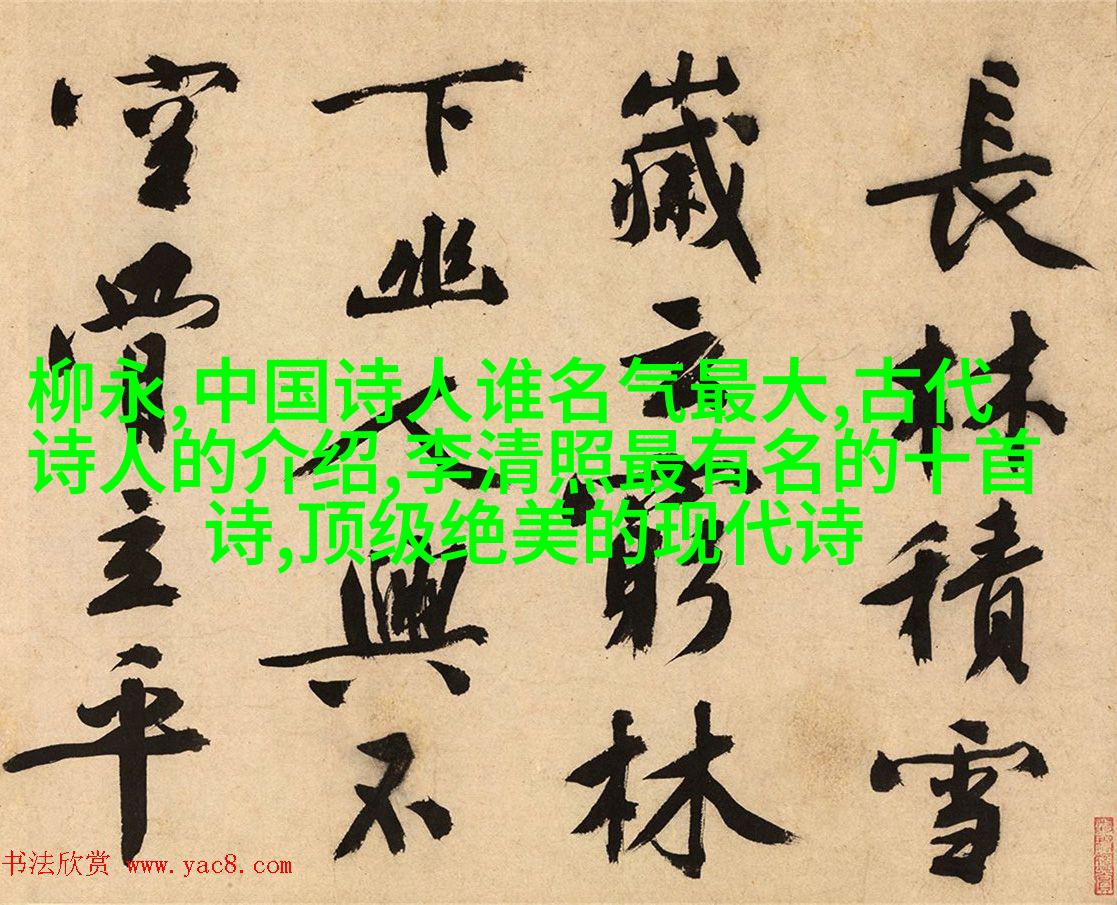 長林積雪
歲云窮林
下幽人興不
空立平
柳永,中国诗人谁名气最大,古代
诗人的介绍,李清照最有名的十首
诗,顶级绝美的现代诗
书法欣赏 www.yac8.com